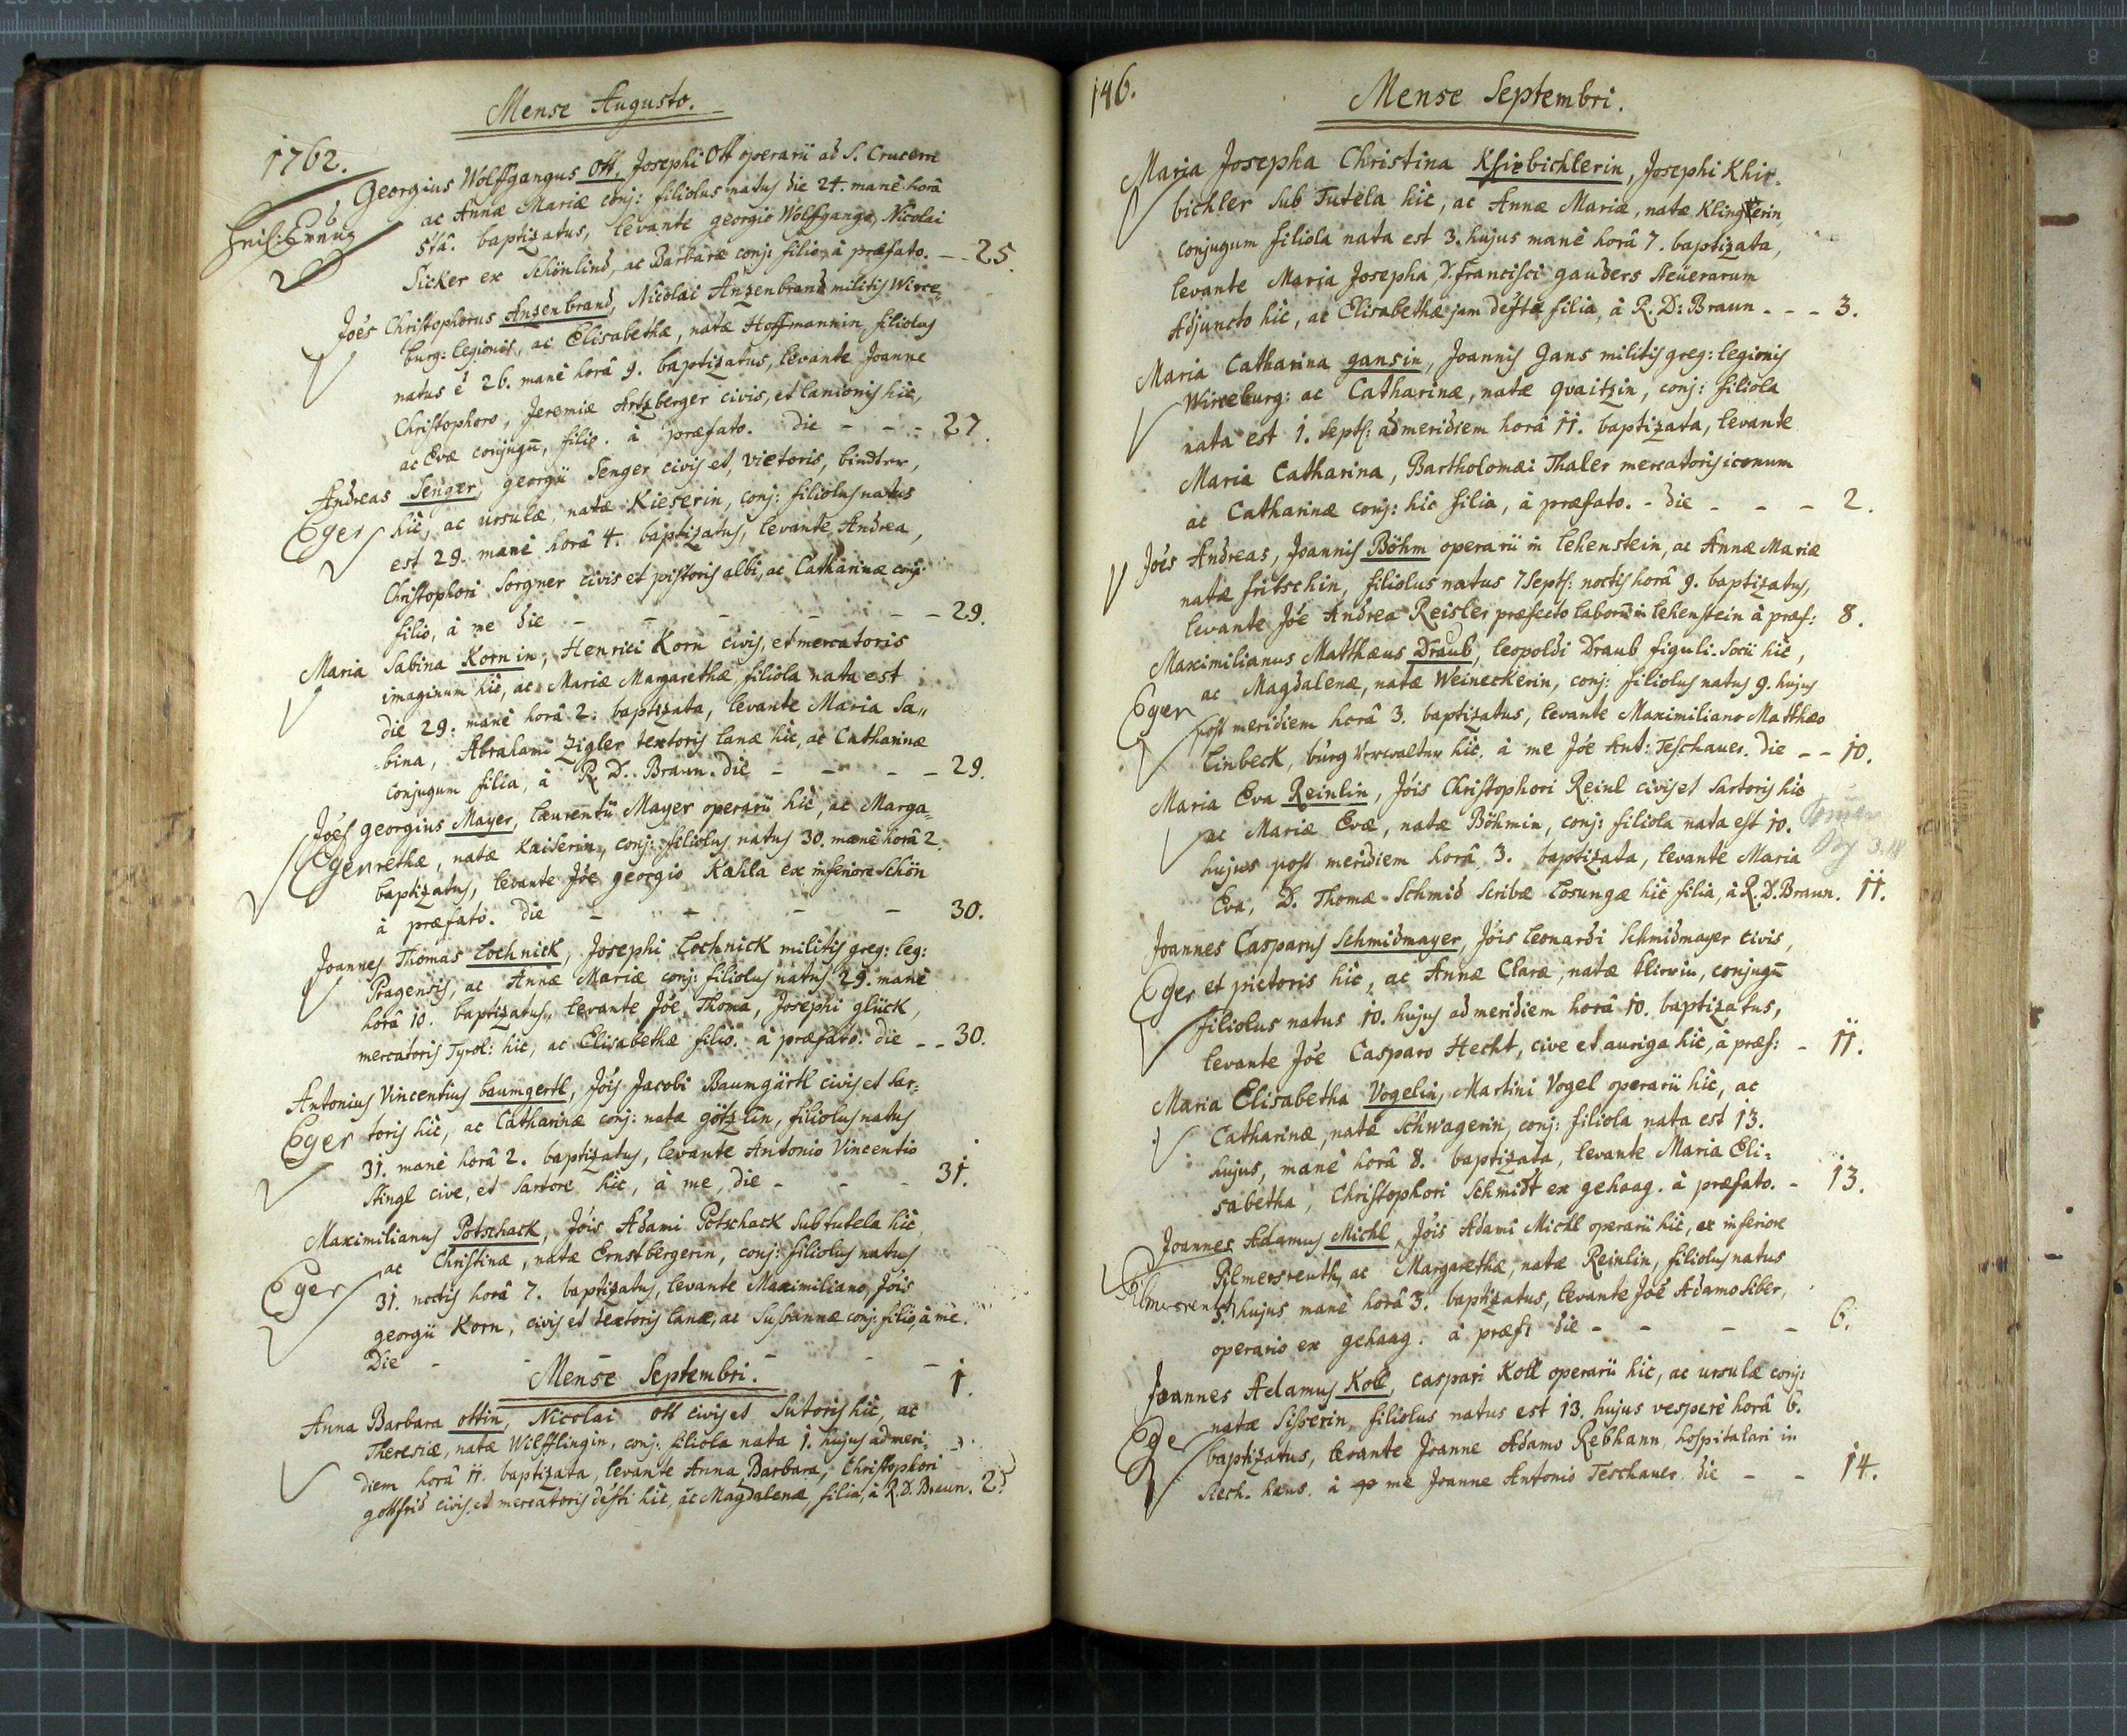 Mense Augusto.
1762.
Georgius Wolffgangus Ott, Josephi Ott operarii ad S. Crucem
ac Annæ Mariæ conj: filiolus natus die 24. manè horâ
5tâ. baptizatus, levante georgio Wolffgango, Nicolai
Sicker ex Schönlind, ac Barbaræ conj: filio, à præfato. - - 25.
Joës Christophorus Anzenbrand, Nicolai Anzenbrand militis Wirce,
burg: legionis, ac Elisabethæ, natæ Hoffmannin, filiolus
natus é 26. manè horâ 9. baptizatus, levante Joanne
Christophoro, Jeremiæ Artzberger civis, et lanionis hic,
ac Evæ conjugū, filio. à præfato. die - - - 27.
Andreas Senger, georgii Senger civis et, vietoris, bindter,
Eger hic, ac ursulæ, natæ Kieserin, conj: filiolus natus
est 29. manè horâ 4. baptizatus, levante Andrea,
Christophori Sorgner civis et pistoris albi, ac Catharinæ conj:
filio, à me die - - - - - - 29.
Maria Sabina Kornin, Henrici Korn civis, et mercatoris
imaginum hic, ac Mariæ Margarethæ, filiola nata est
die 29. manè horâ 2. baptizata, levante Maria Sa,,
bina, Abrahami Zigler textoris lanæ hic, ac Catharinæ
conjugum filia, à R. D. Braun. die - - - - 29.
Joës georgius Mayer, laurentii Mayer operarii hic, ac Marga=
Eger rethæ, natæ Kaiserin, conj: filiolus natus 30. manè horâ 2.
baptizatus, levante Jóe georgio Kahla ex inferiore Schön
à præfato. die - - - - 30.
Joannes Thomas Lochnick, Josephi Lochnick militis greg: leg:
Pragensis, ac Annæ Mariæ conj: filiolus natus 29. manè
horâ 10. baptizatus, levante Jóe Thoma, Josephi glück,
mercatoris Tyrol: hic, ac Elisabethæ filio. à præfato. die - - 30.
Antonius Vincentius baumgertl, Jóis Jacobi Baumgärtl civis et sar=
Eger toris hic, ac Catharinæ conj: natæ götzlin, filiolus natus
31. manè horâ 2. baptizatus, levante Antonio Vincentio
Stingl cive, et sartore hic, à me, die - - - 31.
Maximilianus Potschack, Jóis Adami Potschack sub tutela hic,
ac Christinæ, natæ Ernstbergerin, conj: filiolus natus
Eger 31. noctis horâ 7. baptizatus, levante Maximiliano, Jóis
georgii Korn, civis et textoris lanæ, ac Susannæ conj: filio, à me.
Die - - - - - - 1.
Mense Septembri.
Anna Barbara ottin, Nicolai ott civis et Sutoris hic, ac
Theresiæ, natæ Wilfflingin, conj: filiola nata 1. hujus ad meri=
diem horâ 11. baptizata, levante Anna Barbara, Christophori
gottfrid civis, et mercatoris défti hic, ac Magdalenæ, filia, à R. D. Braun. 2.
146.
Mense Septembri.
Maria Josepha Christina Khirbichlerin, Josephi Khir=
bichler sub Tutela hic, ac Annæ Mariæ, natæ Klinglerin,
conjugum filiola nata est 3. hujus manè horâ 7. baptizata,
levante Maria Josepha, D. Francisci gauders Steüerarum
Adjuncto hic, ac Elisabethæ jam défctæ filia, à R. D: Braun - - - 3.
Maria Catharina gansin, Joannis Gans militis greg: legionis
Wirceburg: ac Catharinæ, natæ Qvaitzin, conj: filiola
nata est 1. Sept: ad meridiem horâ 11. baptizata, levante
Maria Catharina, Bartholomæi Thaler mercatoris iconum
ac Catharinæ conj: hic filia, à præfato. - die - - - 2.
Jóes Andreas, Joannis Böhm operarii in lehenstein, ac Annæ Mariæ
natæ fritschin, filiolus natus 7 Sept: noctis horâ 9. baptizatus,
levante Jóe Andrea Reisler præfecto laborū in lehenstein à præf: 8.
Maximilianus Matthæus Draub, leopoldi Draub figuli. Socii hic,
Eger ac Magdalenæ, natæ Weineckerin, conj: filiolus natus 9. hujus
post meridiem horâ 3. baptizatus, levante Maximiliano Matthæo
Linbeck, burg Verwalter hic, à me Jóe Ant: Teschauer. die - - 10.
Maria Eva Reinlin, Jóis Christophori Reinl civis et sartoris hic
ac Mariæ Evæ, natæ Böhmin, conj: filiola nata est 10.
hujus post meridiem horâ 3. baptizata, levante Maria
Eva, D. Thomæ Schmid scribæ Losungæ hic filia, à R. D. Braun. 11.
Joannes Casparus Schmidmayer, Jóis leonardi Schmidmayer civis,
Eger et pictoris hic, ac Annæ Claræ, natæ, conjugū
filiolus natus 10. hujus ad meridiem horâ 10. baptizatus,
levante Jóe Casparo Hecht, cive et auriga hic, à præf: - 11.
Maria Elisabetha Vogelin, Martini Vogel operarii hic, ac
Catharinæ, natæ Schwagerin, conj: filiola nata est 13.
hujus, manè horâ 8. baptizata, levante Maria Eli=
sabetha, Christophori Schmidt ex gehaag. à præfato. - 13.
Joannes Adamus Michl, Jóis Adami Michl operarii hic, ex inferiore
Pilmersreuth, ac Margarethæ, natæ Reinlin, filiolus natus
Pilmersreuth 5. hujus manè horâ 3. baptizatus, levante Jóe Adamo Siber,
operario ex gehaag. à præf: die - - - - 6.
Joannes Adamus Koll, Caspari Koll operarii hic, ac ursulæ conj:
natæ Sisserin, filiolus natus est 13. hujus vesperè horâ 6.
Eger baptizatus, levante Joanne Adamo Rebhann, hospitalari in
Siech. haus. à me Joanne Antonio Teschauer. die - - 14.